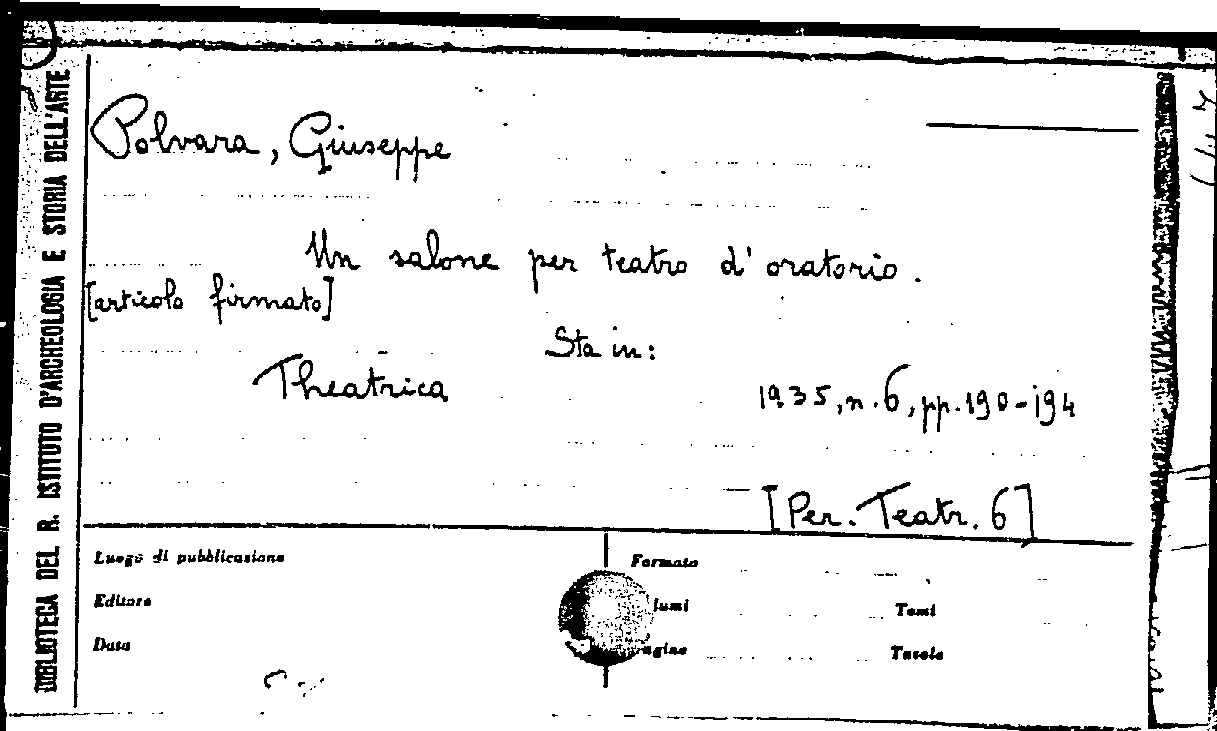 BIBLIOTECA DEL R. ISTITUTO D'ARCHEOLOGIA E STORIA DELL'ARTE
Polvara, Giuseppe
Un salone per teatro d'oratorio.
[articolo firmato]
Sta in:
Theatrica
1935, n. 6, pp. 190-194
[Per. Teatr. 6]
Luogo di pubblicazione
Formato
Editore
lumi
Tomi
Data
agine
Tavole